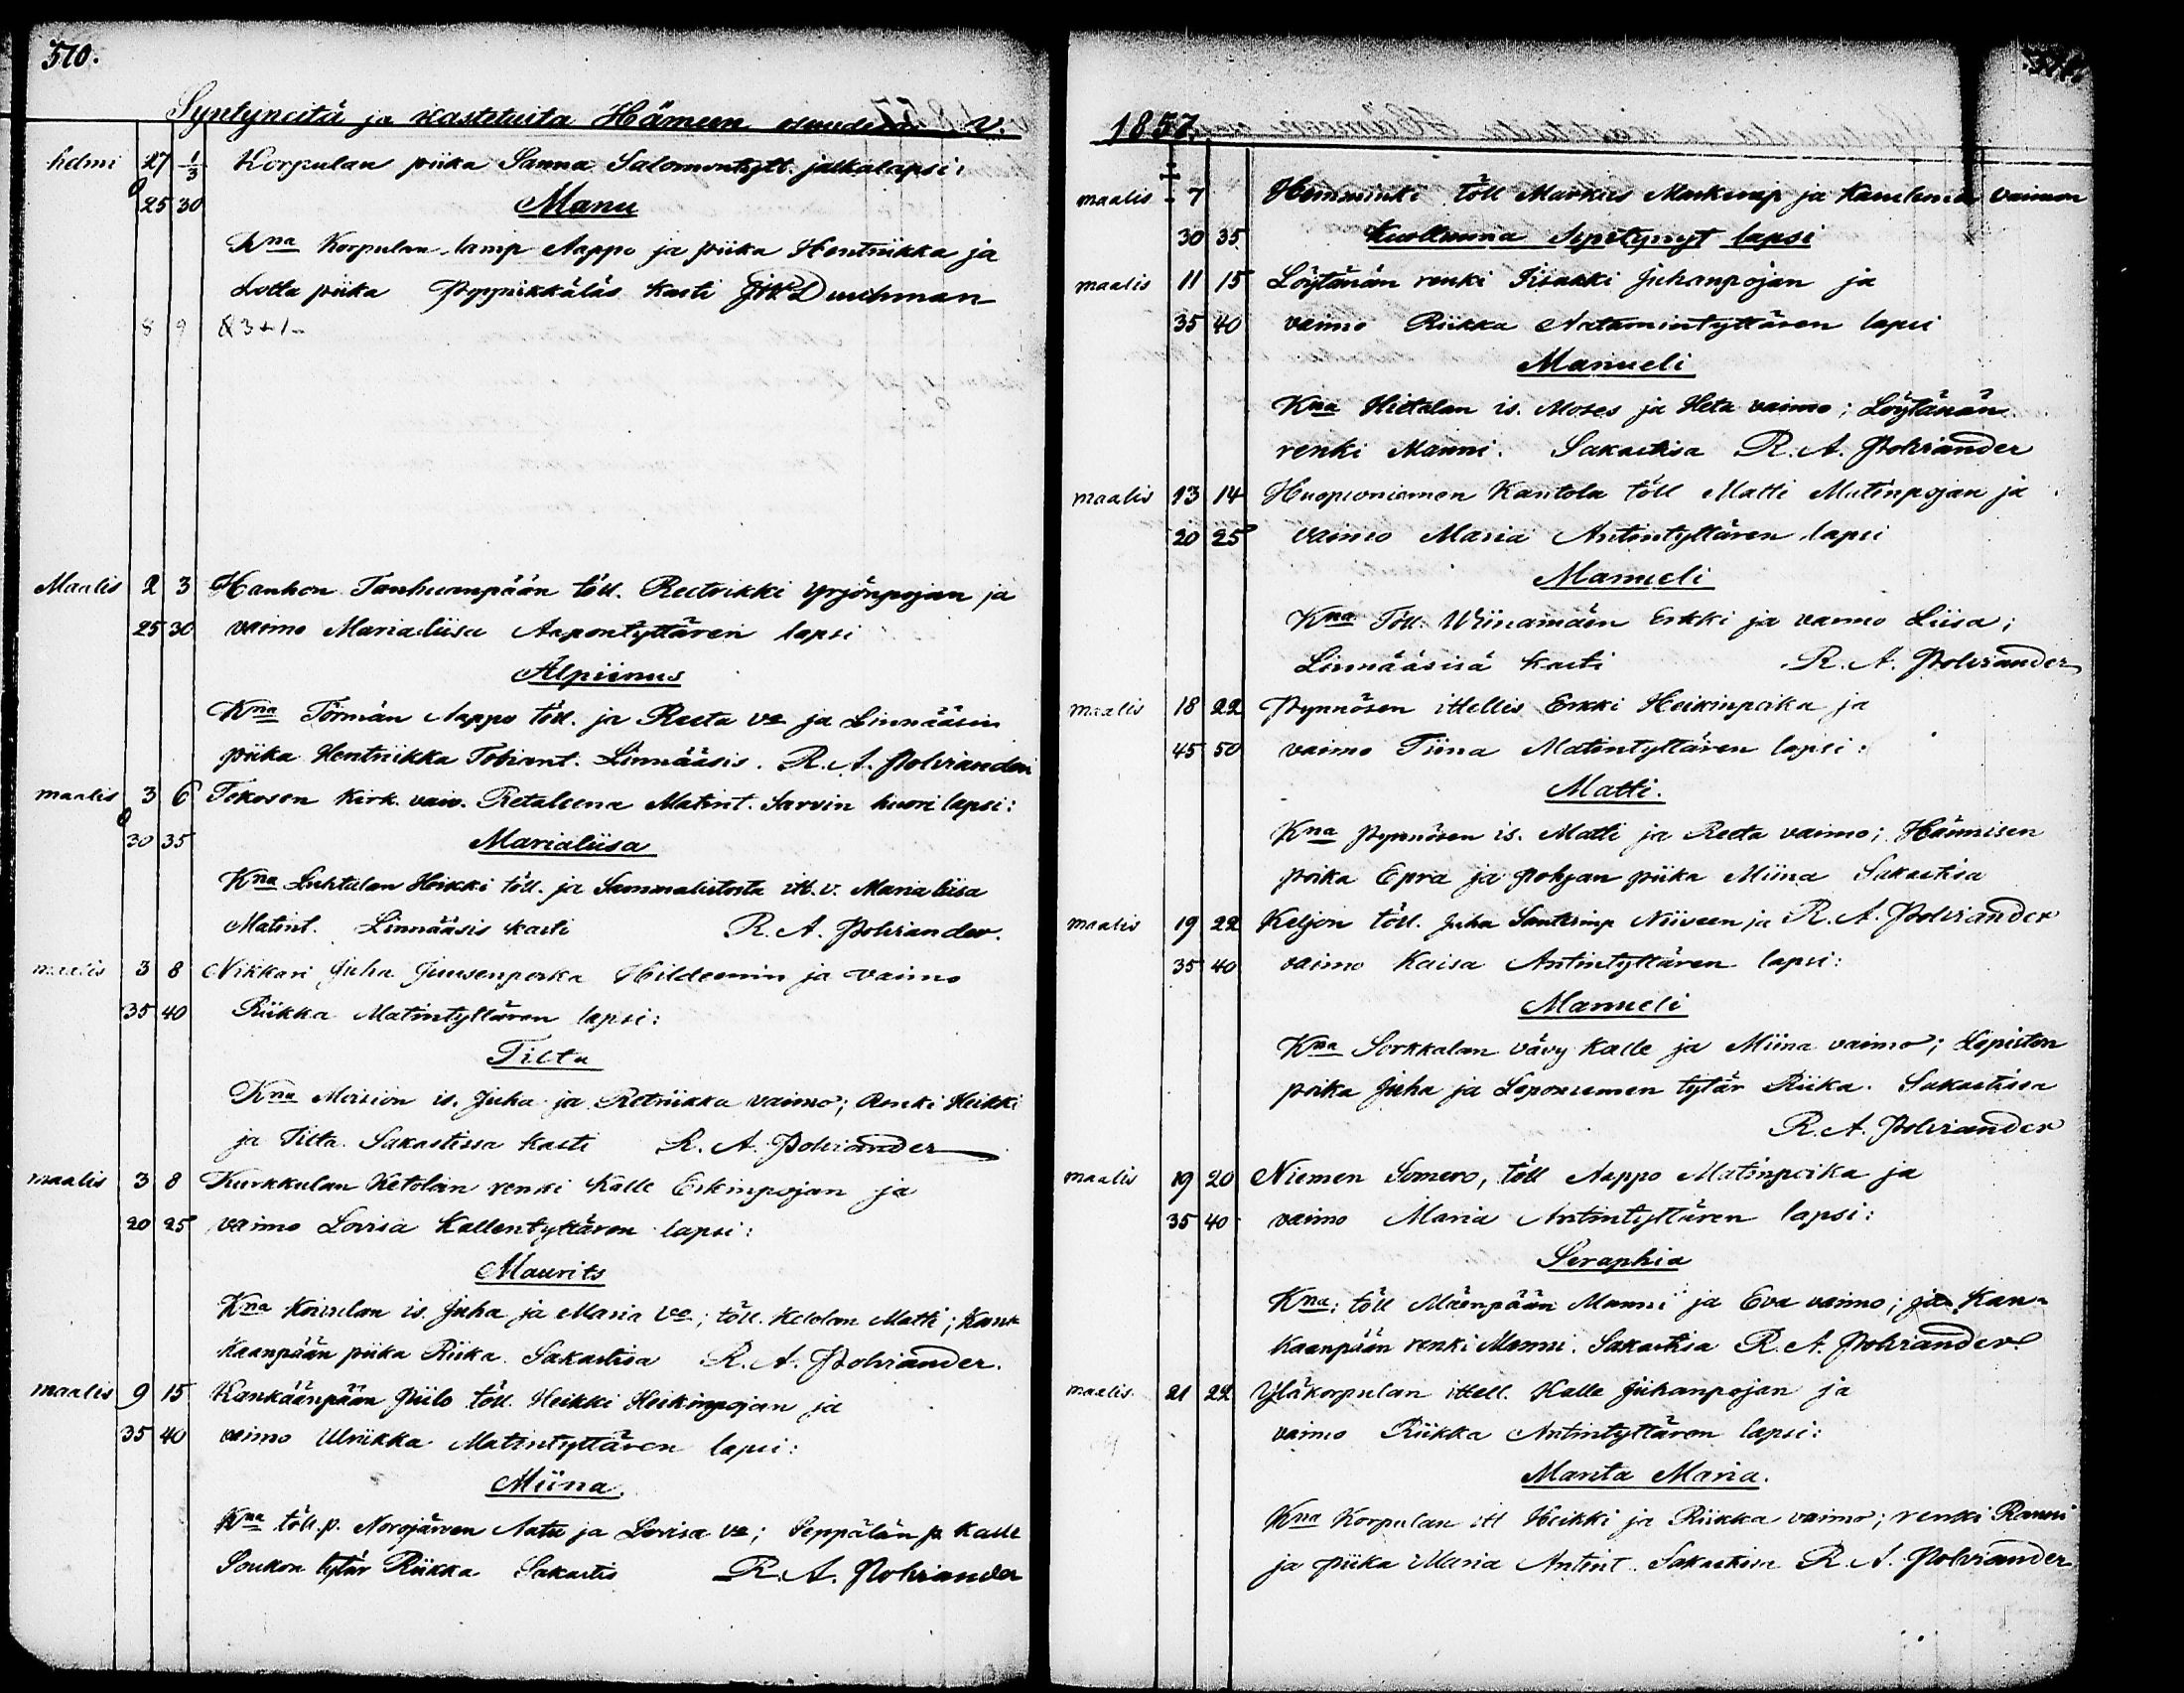 510.
Syntyneitä ja kastetuita Hämeen v.
helmi 27 1/3 Korpulan piika Sanna Salomontytt. jalkalapsi:
25 30 Manu
Kna Korpulan lamp Aappo ja piika Hentriikka ja
Lotta piika kasti Duchman
8 9 3+1-
Maalis 2 3 Hanhon Tanhuanpään töll. Reetrikki Yrjönpojan ja
25 30 vaimo Marialiisa Aapontyttären lapsi
Alpiinus
Kna Törmän Aappo töll. ja Reeta vo ja Linnääsin
piika Hentriikka Tobiant. Linnääsis. R. A. Polviander
maalis 3 6 Tekosen Kirk. vaiv. Retaleena Matint. Sarvin huori lapsi:
30 35 Marialiisa
Kna Luhtalan Heikki töll. ja Sammalistosta itt. v. Maria liisa
Matint. Linnääsis kasti R. A. Polviander.
maalis 3 8 Nikkari Juha Juusenpoika Hildeenin ja vaimo
35 40 Riikka Matintyttären lapsi:
Tilta
Kna Moision is. Juha ja Retriikka vaimo; Renki Heikki
ja Tilta. Sakastissa kasti R. A. Polviander
maalis 3 8 Kurkkulan Ketolan renki Kalle Erkinpojan ja
20 25 vaimo Lovisa Kallentyttären lapsi:
Maurits
Kna Koivulan is. Juha ja Maria vo; töll. Ketolan Matti; Kank
kaanpään piika Riika. Sakastisa R. A. Polviander.
maalis 9 15 Kankaanpään Piilo töll. Heikki Heikinpojan ja
35 40 vaimo Ulriikka Matintyttären lapsi:
Miina.
Kna töll. p. Norojärven Aatu ja Lovisa vo; Seppälän p. Kalle
Soukon tytär Riikka Sakastis R. A. Polviander
1857.
maalis 7 Hemminki töll Markus Markusp ja vaimon
30 35 Kuolleena syntynyt lapsi
maalis 11 15 Löytänän renki Iisakki Juhanpojan ja
35 40 vaimo Riikka Aatamintyttären lapsi
Manueli
Kna Hietalan is. Moses ja Heta vaimo; Löytänän
renki Manni. Sakastisa R. A. Polviander
maalis 13 14 Huopioniemen Kantola töll Matti Matinpojan ja
20 25 vaimo Maria Antintyttären lapsi
Manueli
Kna Töll. Wiinamäen Erkki ja vaimo Liisa;
Linnääsisä kasti R. A. Polviander
maalis 18 22 Pynnösen ittellis Erkki Heikinpoika ja
45 50 vaimo Tiina Matintyttären lapsi:
Matti.
Kna Pynnösen is. Matti ja Reeta vaimo; Hännisen
poika Epra ja Pohjan piika Miina Sakastisa
maalis 19 22 Keljon töll. Juha Santerinp Niiveen ja R. A. Polviander
35 40 vaimo Kaisa Antintyttären lapsi:
Manueli
Kna Sorkkalan vävy Kalle ja Miina vaimo; Lepistön
poika Juha ja Leponiemen tytär Riika. Sakastissa
R. A. Polviander
maalis 19 20 Niemen Somero, töll Aappo Matinpoika ja
35 40 vaimo Maria Antintyttären lapsi:
Seraphia
Kna: töll Mäenpään Manni ja Eva vaimo; ja Kan-
kaanpään renki Manni. Sakastisa R. A. Polviander
maalis 21 22 Yläkorpulan ittell. Kalle Juhanpojan ja
vaimo Riikka Antintyttären lapsi:
Manta Maria.
Kna Korpulan itt Heikki ja Riikka vaimo; renki Ranni
ja piika Maria Antint. Sakastisa R. A. Polviander